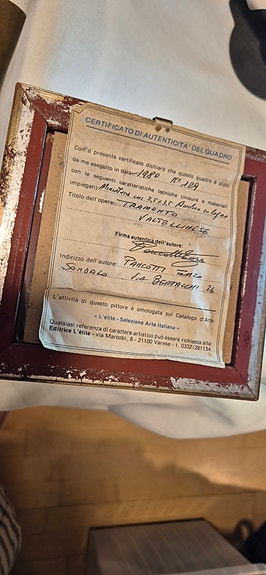 CERTIFICATO DI AUTENTICITA' DEL QUADRO
Con il presente certificato dichiaro che questo quadro è stato
da me eseguito in data 1980 N° 189
con le seguenti caratteristiche tecniche (misure e materiali
impiegati)
Titolo dell'opera: TRAMONTO
VALTELLINESE
Firma autentica dell'autore:
Indirizzo dell'autore:
SONDALO VIA BERTACCHI 26
L'attività di questo pittore è omologata sul Catalogo d'Arte
« L'élite - Selezione Arte Italiana »
Qualsiasi referenza di carattere artistico può essere richiesta alla:
Editrice L'élite - via Marcobi, 8 - 21100 Varese - t. 0332/281134.